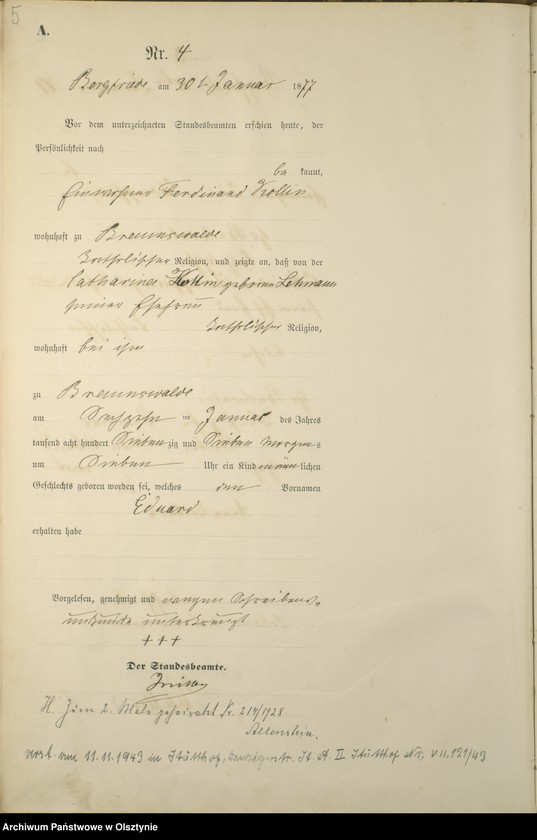 5
A.
Nr. 4
Bergfriede am 30t. Januar 1877
Vor dem unterzeichneten Standesbeamten erschien heute, der
Persönlichkeit nach
be kannt,
Einwohner Ferdinand Kollin
wohnhaft zu Braunswalde
katholischer Religion, und zeigte an, daß von der
Catharina Kollin geboren Lehmann
seiner Ehefrau
katholischer Religion,
wohnhaft bei ihm
zu Braunswalde
am Sechzehn im Januar des Jahres
tausend acht hundert Sieben zig und Sieben Morgens
um Sieben Uhr ein Kind männlichen
Geschlechts geboren worden sei, welches den Vornamen
Eduard
erhalten habe
Vorgelesen, genehmigt und wegen Schreibens=
unkunde unterkreuzt
+++
Der Standesbeamte.
H. Zum 2. Male geheiratet Nr. 214/1928
Allenstein.
verst. am 11.11.1943 in Stutthof, St. A. II Stutthof Nr. VII, 121/43
Archiwum Państwowe w Olsztynie